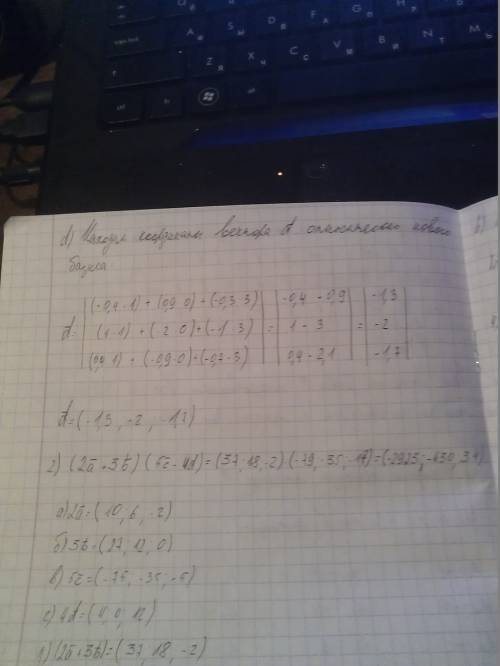 d) Находим координаты вектора d относительно нового
базиса
d = |(-0,4·1) + (0,9·0) + (-0,3·3)| |-0,4 - 0,9| |-1,3|
|(1·1) + (2·0) + (-1·3)| = |1 - 3| = |-2|
|(0,4·1) + (-0,9·0) + (-0,7·3)| |0,4 - 2,1| |-1,7|
d = (-1,3, -2, -1,7)
2) (2a + 3b)(5c - 4d) = (37, 18, -2)(-79, -35, -17) = (-2923, -630, 34)
a) 2a = (10, 6, -2)
б) 3b = (27, 12, 0)
в) 5c = (-75, -35, -5)
c) 4d = (4, 0, 12)
1) (2a + 3b) = (37, 18, -2)